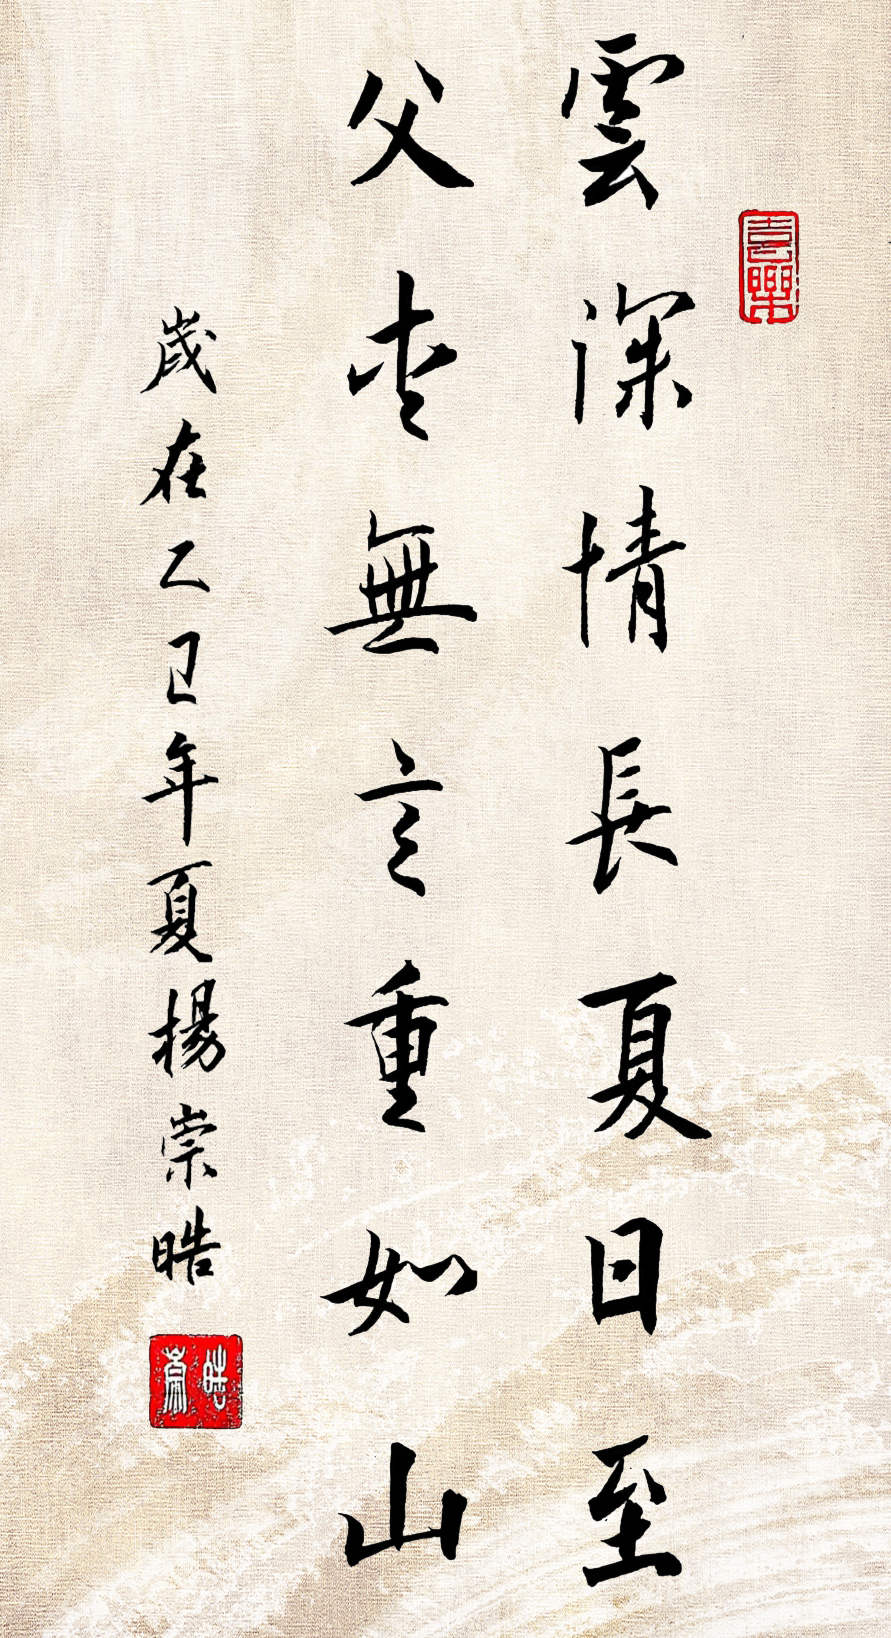 喜樂
雲深情長夏日至
父愛無言重如山
歲在乙巳年夏楊崇晧
崇晧